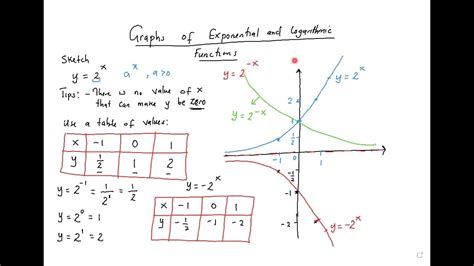 Graphs of Exponential and Logarithmic
Functions
Sketch
y = 2^x   a^x, a>0
Tips: - There is no value of x
that can make y be zero
Use a table of values:
x -1 0 1
y 1/2 1 2
y = 2^-1 = 1/2^1 = 1/2
y = 2^0 = 1
y = 2^1 = 2
y = -2^x
x -1 0 1
y -1/2 -1 -2
y = 2^-x
y = 2^x
y = 2^-x
2
1
1/2
-1
1
-1
-2
y = -2^x